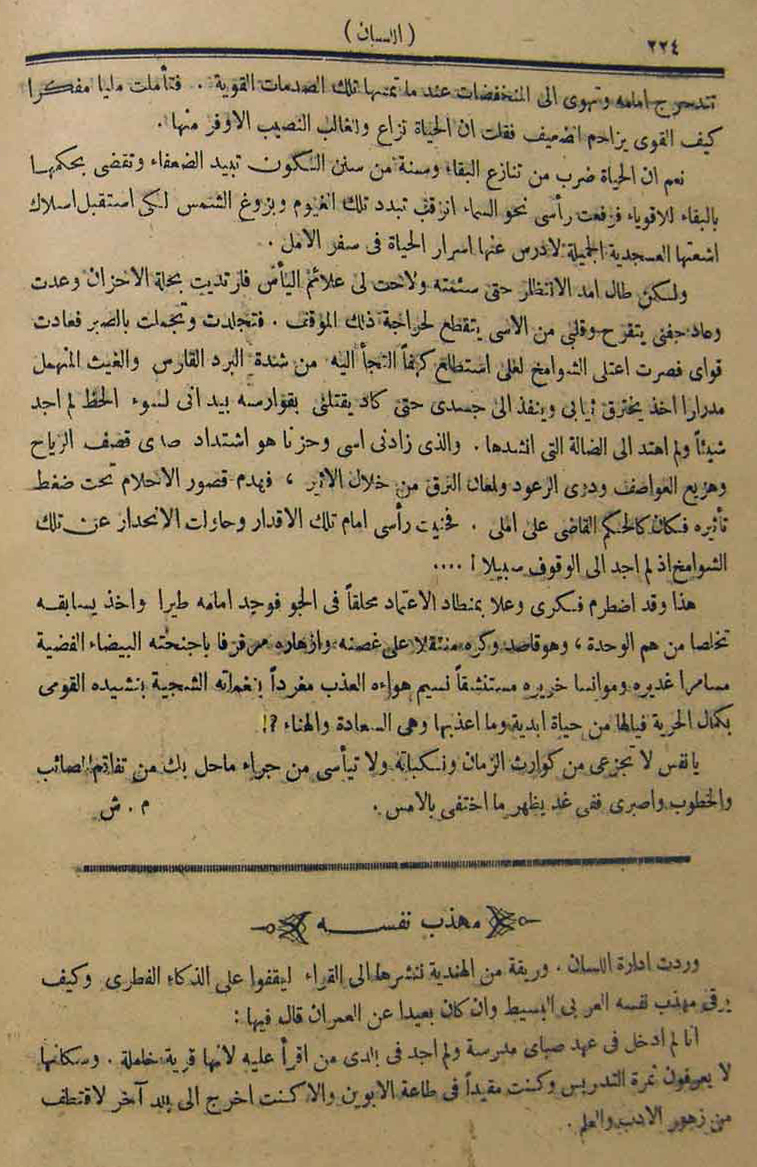 ٢٢٤
( اللسان )
تتدحرج امامه وتهوى الى المنخفضات عند ما تمنها تلك الصدمات القوية . فتأملت مليا مفكرا
كيف القوى يزاحم الضعيف فقلت ان الحياة نزاع والغالب النصيب الاوفر منها .
نعم ان الحياة ضرب من تنازع البقاء وسنة من سنن التكون تبيد الضعفاء وتقضى بحكمها
بالبقاء للاقوياء فرفعت رأسى نحو السماء ارقب تبدد تلك الغيوم وبزوغ الشمس لكى استقبل اسلاك
اشعتها العسجدية الجميلة لادرس عنها اسرار الحياة فى سفر الامل .
ولكن طال امد الانتظار حتى سئمته ولاحت لى علائم اليأس فارتديت بحلة الاحزان وعدت
وعاد جفنى يتقرح وقلبى من الاسى يتقطع لحراجة ذلك الموقف . فتجلدت وتجملت بالصبر فعادت
قواى فصرت اعتلى الشوامخ لعلى استطلع كهفاً التجأ اليه من شدة البرد القارس والغيث المنهمل
مدرارا اخذ يخترق ثيابى وينفذ الى جسدى حتى كاد يقتلنى بقوارسه بيد انى لسوء الحظ لم اجد
شيئاً ولم اهتد الى الضالة التى انشدها . والذى زادنى اسى وحزنا هو اشتداد صدى قصف الرياح
وهزيع العواصف ودوى الرعود ولمعان البرق من خلال الاثير ، فهدم قصور الاحلام تحت ضغط
تأثيره فكان كالحكم القاضى على املى . فحنيت رأسى امام تلك الاقدار وحاولت الانحدار عن تلك
الشوامخ اذ لم اجد الى الوقوف سبيلا ! ....
هذا وقد اضطرم فكرى وعلا بمنطاد الاعتماد محلقاً فى الجو فوجد امامه طيرا واخذ يسابقه
تخلصا من هم الوحدة ، وهو قاصد وكره متنقلا على غصنه وازهاره مرفرفا باجنحته البيضاء الفضية
مسامرا غديره وموانسا خريره مستنشقاً نسيم هواءه العذب مغرداً بنغماته الشجية بنشيده القومى
بكمال الحرية فيالها من حياة ابدية وما اعذبها وهى السعادة والهناء ؟!
يانفس لا تجزعى من كوارث الزمان ونكباته ولا تيأسى من جراء ماحل بك من تفاقم المصائب
والخطوب واصبرى ففى غد يظهر ما اختفى بالامس .
م . ش
مهذب نفسه
وردت ادارة اللسان . وريقة من الهندية ننشرها الى القراء ليقفوا على الذكاء الفطرى وكيف
يرقى مهذب نفسه العربى البسيط وان كان بعيدا عن العمران قال فيها :
انا لم ادخل فى عهد صباى مدرسة ولم اجد فى بلدى من اقرأ عليه لانها قرية خاملة . وسكانها
لا يعرفون ثمرة التدريس وكنت مقيداً فى طاعة الابوين والا كنت اخرج الى بلد آخر لاقتطف
من زهور الادب والعلم .